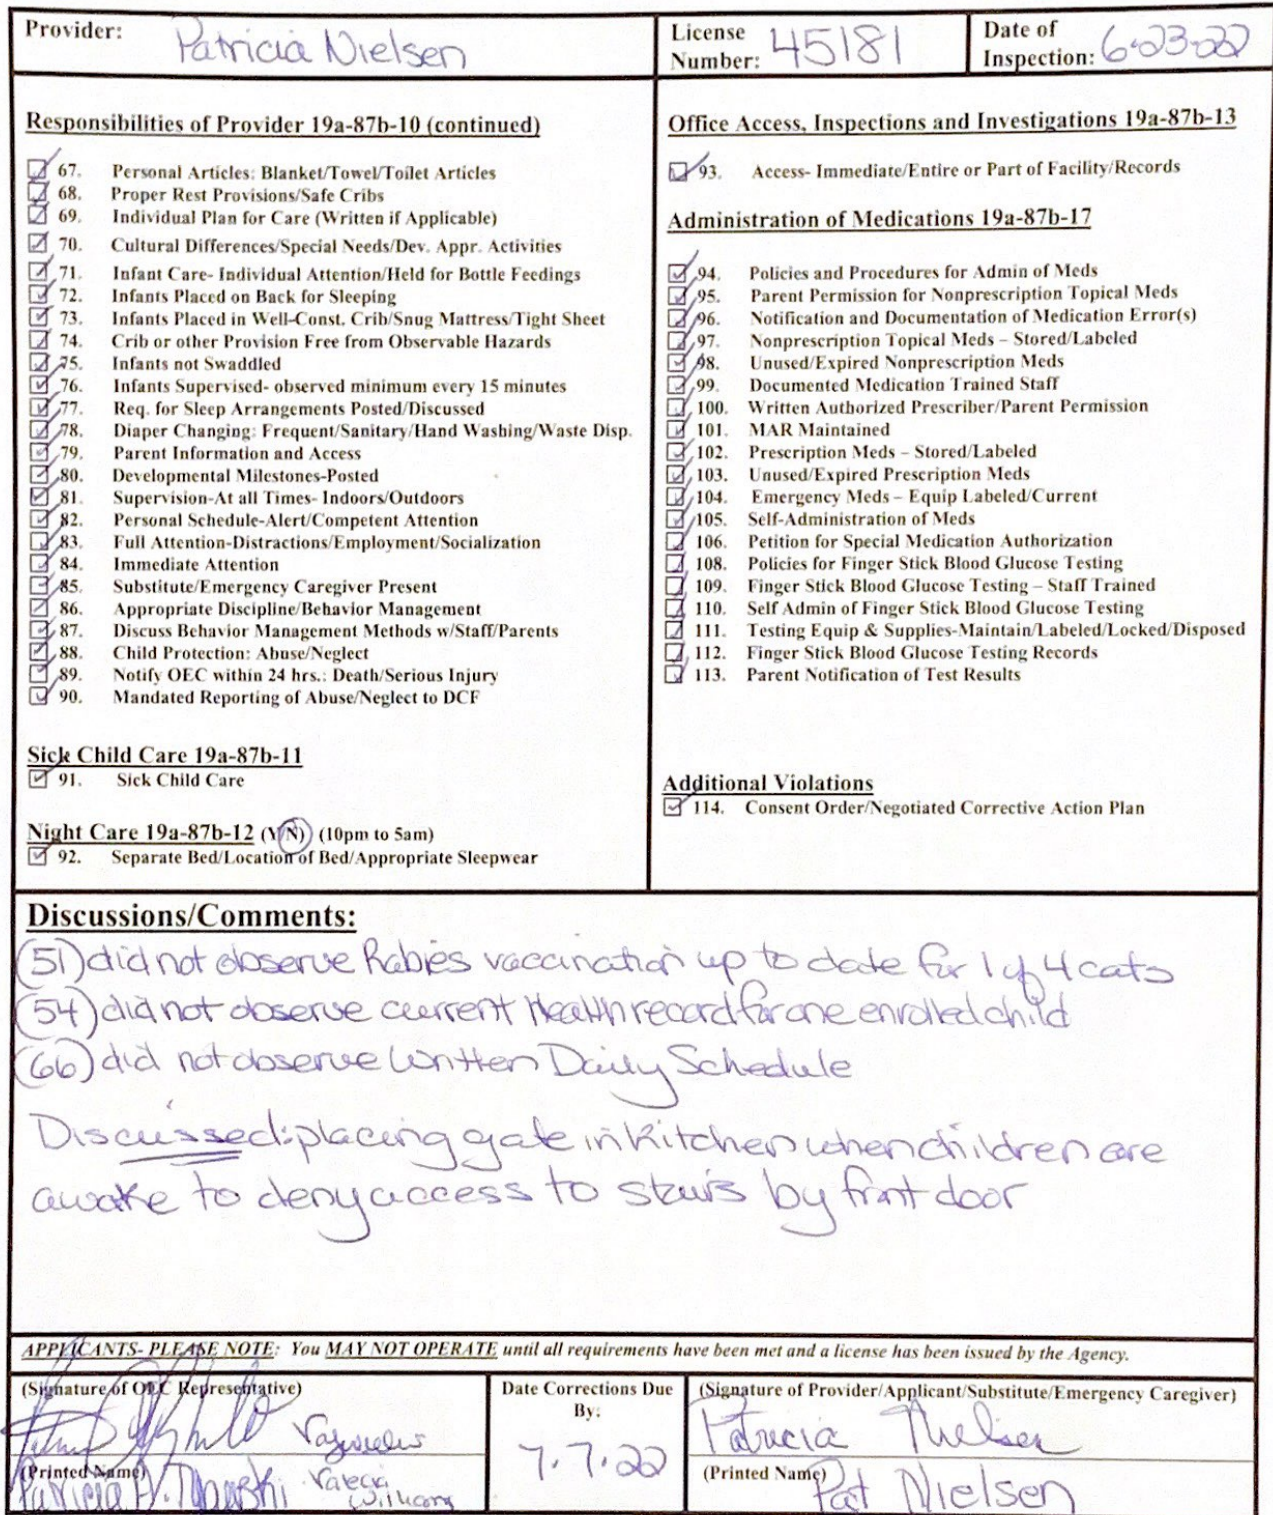 Provider: Patricia Nielsen
License Number: 45181
Date of Inspection: 6-23-22
Responsibilities of Provider 19a-87b-10 (continued)
67. Personal Articles: Blanket/Towel/Toilet Articles
68. Proper Rest Provisions/Safe Cribs
69. Individual Plan for Care (Written if Applicable)
70. Cultural Differences/Special Needs/Dev. Appr. Activities
71. Infant Care- Individual Attention/Held for Bottle Feedings
72. Infants Placed on Back for Sleeping
73. Infants Placed in Well-Const. Crib/Snug Mattress/Tight Sheet
74. Crib or other Provision Free from Observable Hazards
75. Infants not Swaddled
76. Infants Supervised- observed minimum every 15 minutes
77. Req. for Sleep Arrangements Posted/Discussed
78. Diaper Changing: Frequent/Sanitary/Hand Washing/Waste Disp.
79. Parent Information and Access
80. Developmental Milestones-Posted
81. Supervision-At all Times- Indoors/Outdoors
82. Personal Schedule-Alert/Competent Attention
83. Full Attention-Distractions/Employment/Socialization
84. Immediate Attention
85. Substitute/Emergency Caregiver Present
86. Appropriate Discipline/Behavior Management
87. Discuss Behavior Management Methods w/Staff/Parents
88. Child Protection: Abuse/Neglect
89. Notify OEC within 24 hrs.: Death/Serious Injury
90. Mandated Reporting of Abuse/Neglect to DCF
Sick Child Care 19a-87b-11
91. Sick Child Care
Night Care 19a-87b-12 (Y/N) (10pm to 5am)
92. Separate Bed/Location of Bed/Appropriate Sleepwear
Office Access, Inspections and Investigations 19a-87b-13
93. Access- Immediate/Entire or Part of Facility/Records
Administration of Medications 19a-87b-17
94. Policies and Procedures for Admin of Meds
95. Parent Permission for Nonprescription Topical Meds
96. Notification and Documentation of Medication Error(s)
97. Nonprescription Topical Meds – Stored/Labeled
98. Unused/Expired Nonprescription Meds
99. Documented Medication Trained Staff
100. Written Authorized Prescriber/Parent Permission
101. MAR Maintained
102. Prescription Meds – Stored/Labeled
103. Unused/Expired Prescription Meds
104. Emergency Meds – Equip Labeled/Current
105. Self-Administration of Meds
106. Petition for Special Medication Authorization
108. Policies for Finger Stick Blood Glucose Testing
109. Finger Stick Blood Glucose Testing – Staff Trained
110. Self Admin of Finger Stick Blood Glucose Testing
111. Testing Equip & Supplies-Maintain/Labeled/Locked/Disposed
112. Finger Stick Blood Glucose Testing Records
113. Parent Notification of Test Results
Additional Violations
114. Consent Order/Negotiated Corrective Action Plan
Discussions/Comments:
(51) did not observe Rabies vaccination up to date for 1 of 4 cats
(54) did not observe current Health record for one enrolled child
(66) did not observe Written Daily Schedule
Discussed: placing gate in Kitchen when children are
awake to deny access to stairs by front door
APPLICANTS- PLEASE NOTE: You MAY NOT OPERATE until all requirements have been met and a license has been issued by the Agency.
(Signature of OEC Representative)
(Printed Name) Patricia
Date Corrections Due By:
7.7.22
(Signature of Provider/Applicant/Substitute/Emergency Caregiver)
Patricia Nielsen
(Printed Name)
Pat Nielsen